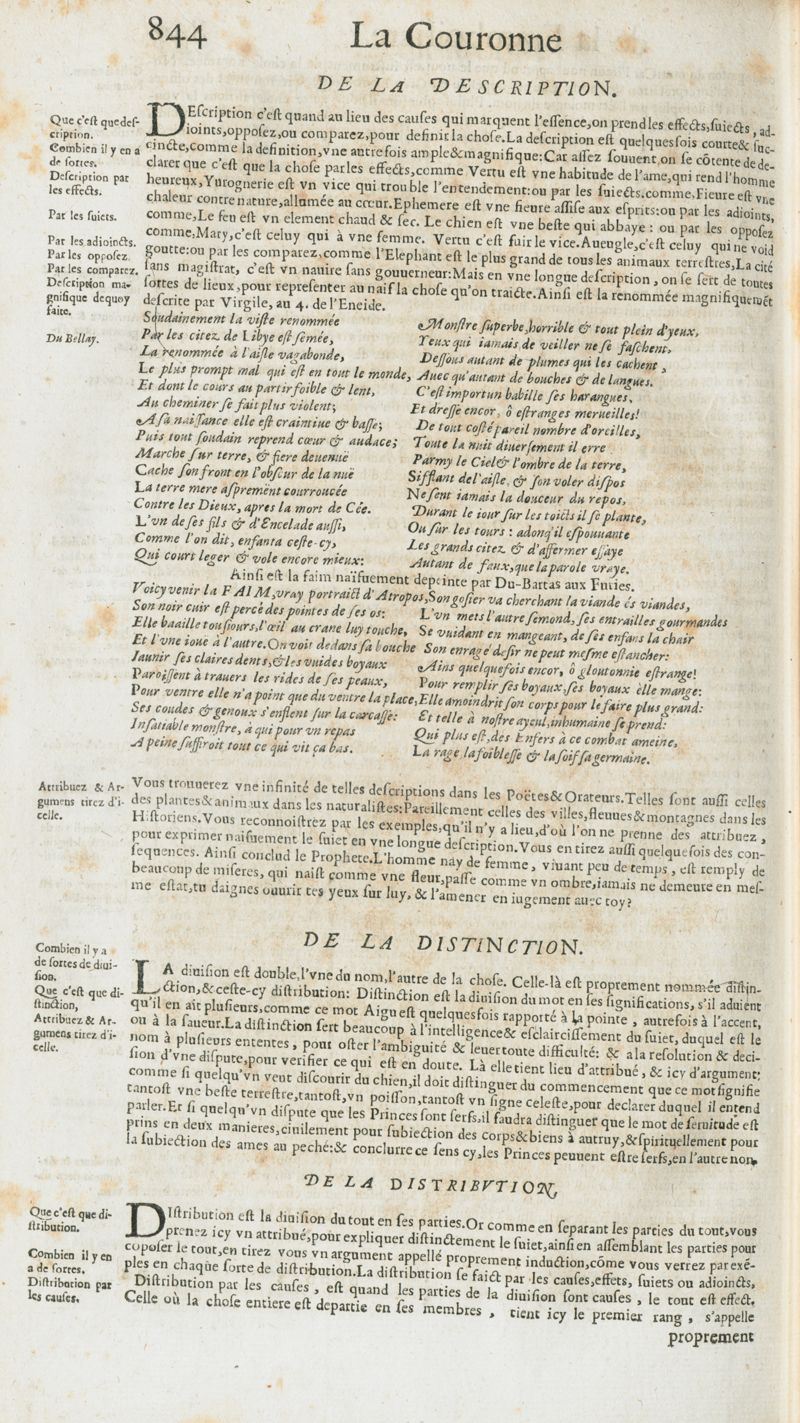 844
La Couronne
DE LA DESCRIPTION.
Que c'eſt que deſ-
cription.
Combien il y en a
de ſortes.
Deſcription par
les effects.
Par les ſuiets.
Par les adioincts.
Par les oppoſez
Par les comparez.
Deſcription ma-
gnifique dequoy
faite.
Du Bellay.
DEſcription c'eſt quand au lieu des cauſes qui marquent l'eſſence, on prend les effects, ſuiects, ad-
ioints, oppoſez, ou comparez, pour definir la choſe. La deſcription eſt quelquesfois courte & ſuc-
cincte, comme la definition, vne autrefois ample & magnifique: Car aſſez ſouuent, on ſe cōtente de de-
clarer que c'eſt que la choſe par les effects, comme Vertu eſt vne habitude de l'ame, qui rend l'homme
heureux, Yurognerie eſt vn vice qui trouble l'entendement: ou par les ſuiects. comme, Fieure eſt vne
chaleur contre nature, allumée au cœur. Ephemere eſt vne fieure aſſiſe aux eſprits: ou par les adioints,
comme, Le feu eſt vn element chaud & ſec. Le chien eſt vne beſte qui abbaye: ou par les oppoſez
comme, Mary, c'eſt celuy qui à vne femme. Vertu c'eſt fuir le vice. Aueugle, c'eſt celuy qui ne void
goutte: ou par les comparez, comme l'Elephant eſt le plus grand de tous les animaux terreſtres, La cité
ſans magiſtrat, c'eſt vn nauire ſans gouuerneur: Mais en vne longue deſcription, on ſe ſert de toutes
ſortes de lieux, pour repreſenter au naïf la choſe qu'on traicte. Ainſi eſt la renommée magnifiquemēt
deſcrite par Virgile, au 4. de l'Eneide.
Soudainement la viſte renommée
Par les citez de Libye eſt ſemée,
La renommée à l'aiſle vagabonde,
Le plus prompt mal qui eſt en tout le monde,
Et dont le cours au partir foible & lent,
Au cheminer ſe fait plus violent;
A ſa naiſſance elle eſt craintiue & baſſe;
Puis tout ſoudain reprend cœur & audace;
Marche ſur terre, & fiere deuenuë
Cache ſon front en l'obſcur de la nuë
La terre mere aſprement courroucée
Contre les Dieux, apres la mort de Cée.
L'vn de ſes fils & d'Encelade auſſi,
Comme l'on dit, enfanta ceſte-cy,
Qui court leger & vole encore mieux:
Monſtre ſuperbe, horrible & tout plein d'yeux,
Yeux qui iamais de veiller ne ſe faſchent,
Deſſous autant de plumes qui les cachent,
Auec qu'autant de bouches & de langues.
C'eſt importun babille ſes harangues,
Et dreſſe encor, ô eſtranges merueilles!
De tout coſté pareil nombre d'oreilles,
Toute la nuit diuerſement il erre
Parmy le Ciel & l'ombre de la terre,
Sifflant de l'aiſle, & ſon voler diſpos
Ne ſent iamais la douceur du repos,
Durant le iour ſur les toicts il ſe plante,
Ou ſur les tours: adonq'il eſpouuante
Les grands citez & d'aſſermer eſſaye
Autant de faux, que la parole vraye.
Ainſi eſt la faim naïfuement depeinte par Du-Bartas aux Furies.
Voicy venir la FAIM, vray portraict d'Atropos,
Son noir cuir eſt percé des pointes de ſes os:
Elle baaille touſiours, l'œil au crane luy touche,
Et l'vne ioue à l'autre. On voit dedans ſa bouche
Iaunir ſes claires dents, & les vuides boyaux
Paroiſſent à trauers les rides de ſes peaux,
Pour ventre elle n'a point que du ventre la place,
Ses coudes & genoux s'enflent ſur la carcaſſe:
Inſatiable monſtre, à qui pour vn repas
A peine ſuffiroit tout ce qui vit ça bas.
Son geſier va cherchant la viande és viandes,
L'vn mets l'autre ſemond, ſes entrailles gourmandes
Se vuidant en mangeant, de ſes enfans la chair
Son enragé deſir ne peut meſme eſtancher:
Ains quelquefois encor, ô gloutonnie eſtrange!
Pour remplir ſes boyaux, ſes boyaux elle mange:
Elle amoindrit ſon corps pour le faire plus grand:
Et telle à noſtre ayeul, inhumaine ſe prend:
Qui plus eſt, des Enfers à ce combat ameine,
La rage, la foibleſſe & la ſoif ſa germaine.
Attribuez & Ar-
gumens tirez d'i-
celle.
Vous trouuerez vne infinité de telles deſcriptions dans les Poëtes & Orateurs. Telles ſont auſſi celles
des plantes & animaux dans les naturaliſtes: Pareillement celles des villes, fleuues & montagnes dans les
Hiſtoriens. Vous reconnoiſtrez par les exemples, qu'il n'y a lieu, d'où l'on ne prenne des attribuez,
pour exprimer naïfuement le ſuiet en vne longue deſcription. Vous en tirez auſſi quelquefois des con-
ſequences. Ainſi conclud le Prophete. L'homme nay de femme, viuant peu de temps, eſt remply de
beaucoup de miſeres, qui naiſt comme vne fleur, paſſe comme vn ombre, iamais ne demeure en meſ-
me eſtat, tu daignes ouurir tes yeux ſur luy, & l'amener en iugement auec toy?
DE LA DISTINCTION.
Combien il y a
de ſortes de diui-
ſion.
Que c'eſt que di-
ſtinction,
Attribuez & Ar-
gumens tirez d'i-
celle.
LA diuiſion eſt double, l'vne du nom, l'autre de la choſe. Celle-là eſt proprement nommée diſtin-
ction, & ceſte-cy diſtribution: Diſtinction eſt la diuiſion du mot en ſes ſignifications, s'il aduient
qu'il en ait pluſieurs, comme ce mot Aigu eſt quelquesfois rapporté à la pointe, autrefois à l'accent,
ou à la ſaueur. La diſtinction ſert beaucoup à l'intelligence & eſclairciſſement du ſuiet, duquel eſt le
nom à pluſieurs ententes, pour oſter l'ambiguité & leuer toute difficulté: & à la reſolution & deci-
ſion d'vne diſpute, pour verifier ce qui eſt en doute. Là elle tient lieu d'attribué, & icy d'argument;
comme ſi quelqu'vn veut diſcourir du chien, il doit diſtinguer du commencement que ce mot ſignifie
tantoſt vne beſte terreſtre, tantoſt, vn poiſſon, tantoſt vn ſigne celeſte, pour declarer duquel il entend
parler. Et ſi quelqu'vn diſpute que les Princes ſont ſerfs, il faudra diſtinguer que le mot de ſeruitude eſt
prins en deux manieres, ciuilement pour ſubiection des corps & biens à autruy, & ſpirituellement pour
la ſubiection des ames au peché: & conclurre ce ſens cy, les Princes peuuent eſtre ſerfs, en l'autre non,
DE LA DISTRIBVTION,
Que c'eſt que di-
ſtribution.
Combien il y en
a de ſortes.
Diſtribution par
les cauſes.
DIſtribution eſt la diuiſion du tout en ſes parties. Or comme en ſeparant les parties du tout, vous
prenez icy vn attribué, pour expliquer diſtinctement le ſuiet, ainſi en aſſemblant les parties pour
cōpoſer le tout, en tirez vous vn argument appellé proprement induction, cōme vous verrez par exē-
ples en chaque ſorte de diſtribution. La diſtribution ſe faict par les cauſes, effets, ſuiets ou adioincts,
Diſtribution par les cauſes, eſt quand les parties de la diuiſion ſont cauſes, le tout eſt effect.
Celle où la choſe entiere eſt departie en ſes membres, tient icy le premier rang, s'appelle
proprement